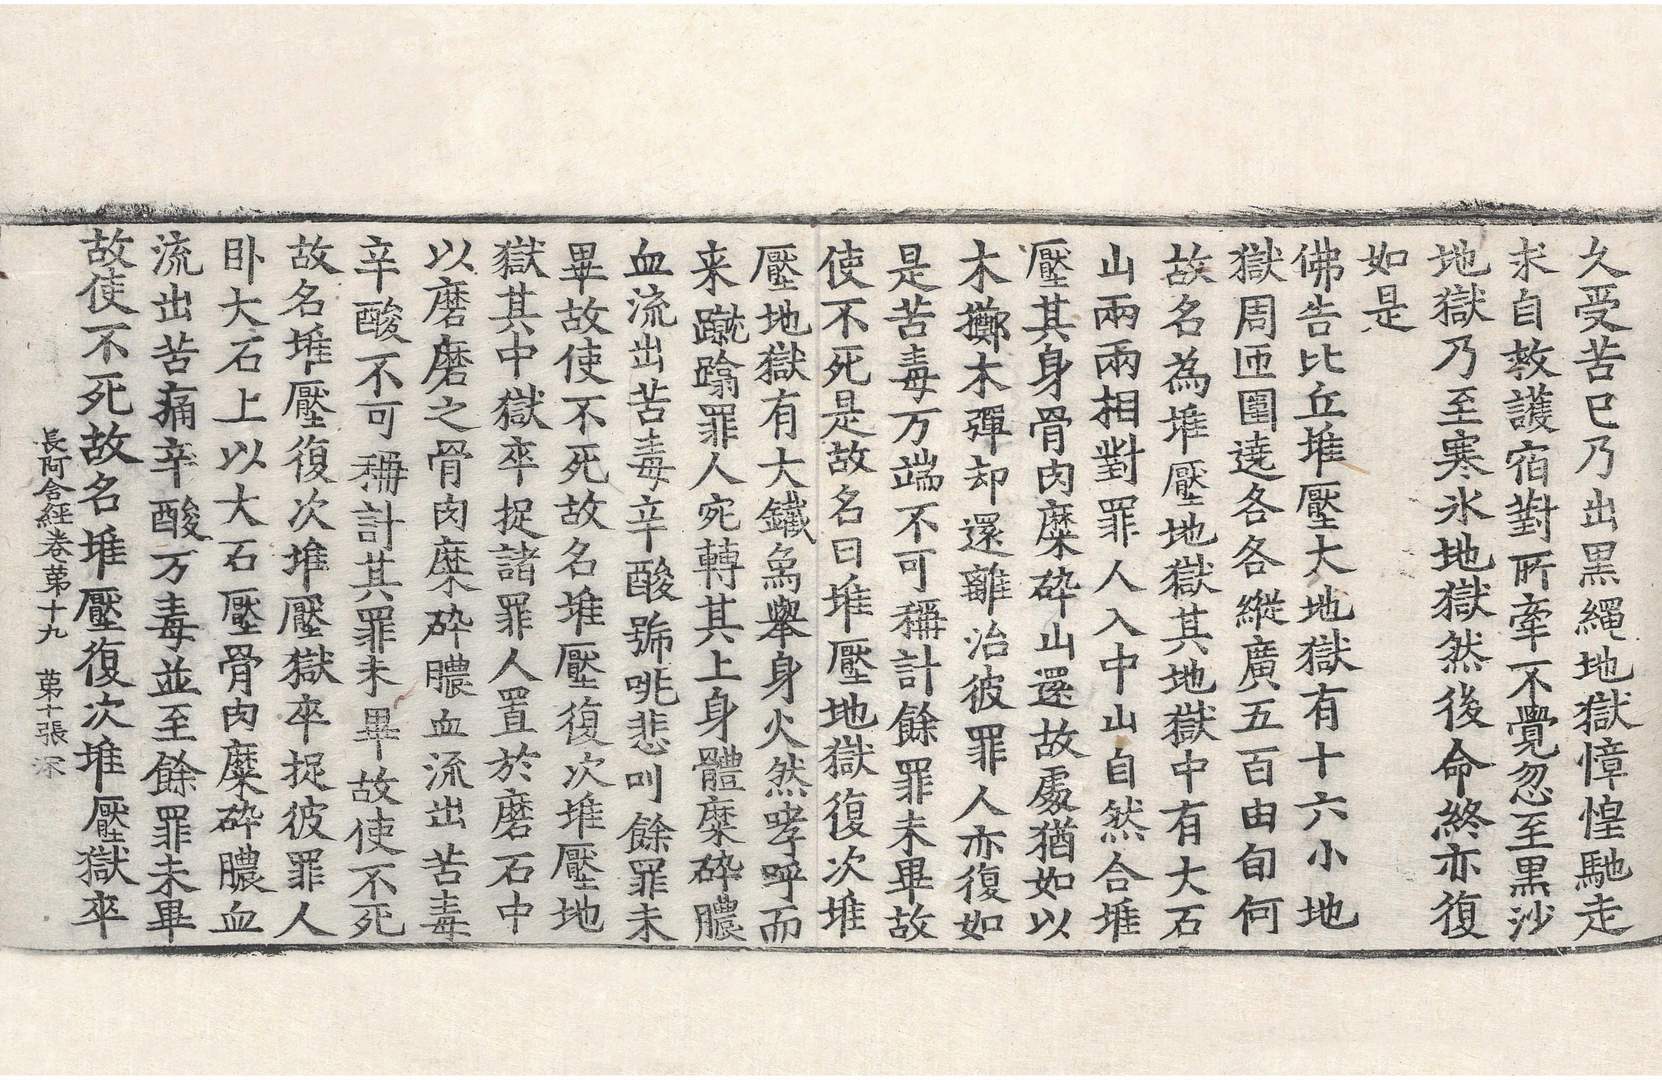 久受苦已乃出黑繩地獄慞惶馳走
求自救護宿對所牽不覺忽至黑沙
地獄乃至寒氷地獄然後命終亦復
如是
佛告比丘堆壓大地獄有十六小地
獄周匝圍遶各各縱廣五百由旬何
故名為堆壓地獄其地獄中有大石
山兩兩相對罪人入中山自然合堆
壓其身骨肉糜碎山還故處猶如以
木擲木彈却還離治彼罪人亦復如
是苦毒万端不可稱計餘罪未畢故
使不死是故名曰堆壓地獄復次堆
壓地獄有大鐵象舉身火然哮呼而
来蹴蹹罪人宛轉其上身體糜碎膿
血流出苦毒辛酸號咷悲叫餘罪未
畢故使不死故名堆壓復次堆壓地
獄其中獄卒捉諸罪人置於磨石中
以磨磨之骨肉糜碎膿血流出苦毒
辛酸不可稱計其罪未畢故使不死
故名堆壓復次堆壓獄卒捉彼罪人
卧大石上以大石壓骨肉糜碎膿血
流出苦痛辛酸万毒並至餘罪未畢
故使不死故名堆壓復次堆壓獄卒
長阿含經卷苐十九　苐十張　深